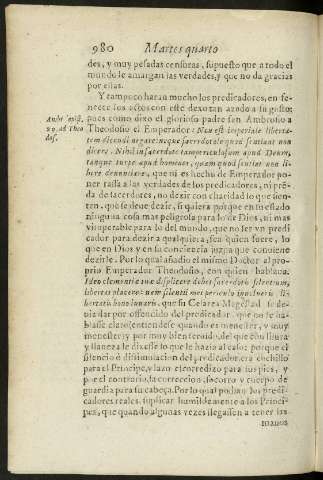 980 Martes quarto
des, y muy pesadas censuras, supuesto que a todo el
mundo le amargan las verdades, y que no da gracias
por ellas.
Y tampoco haran mucho los predicadores, en fe-
necer los con este dexo tan azedo a su gusto;
pues como dixo el glorioso padre san Ambrosio a
Theodosio el Emperador: Neque est imperiale liberta-
tem dicendi negare: neque sacerdotale quod sentiant non
dicere. Nihil in sacerdote tam periculosum apud Deum,
tamque turpe apud homines, quam quod sentiat non li-
bere denuntiare, que ni es hecho de Emperador po-
ner tassa a las verdades de los predicadores, ni pre-
da de sacerdotes, no dezir con claridad lo que sien-
ten, que se deue dezir, siquiera porque en su estado
ninguna cosa mas peligrosa para lo de Dios, ni mas
vituperable para lo del mundo, que no ser vn predi-
cador para dezir a qualquiera, sea quien fuere, lo
que en Dios y en su conciencia juzga que conuiene
dezirle. Por lo qual añadio el mismo Doctor al pro-
prio Emperador Theodosio, con quien hablaua.
Ideo clementiæ tuæ displicere debet sacerdotis silentium,
libertas placere:
bertatis bono iuuaris, que su Cesarea Magestad se de-
uia dar por offendido del predicador, que no le ha-
blasse claro entendiesse quando es menester, y muy
menester, y por muy bien seruido, del que con lisura
y llaneza le dixesse lo que le hazia al caso: porque el
silencio ò dissimulacion del predicador, era cuchillo
para el Principe, y lazo escorredizo para sus pies, y
por el contrario, la correccion, socorro y cuerpo de
guardia para su cabeça. Por lo qual podran los predi-
cadores reales, suplicar humildemente a los Princi-
pes, que quando algunas vezes llegassen a tener las
manos
Ambr. epist.
29. ad Theo
dos.